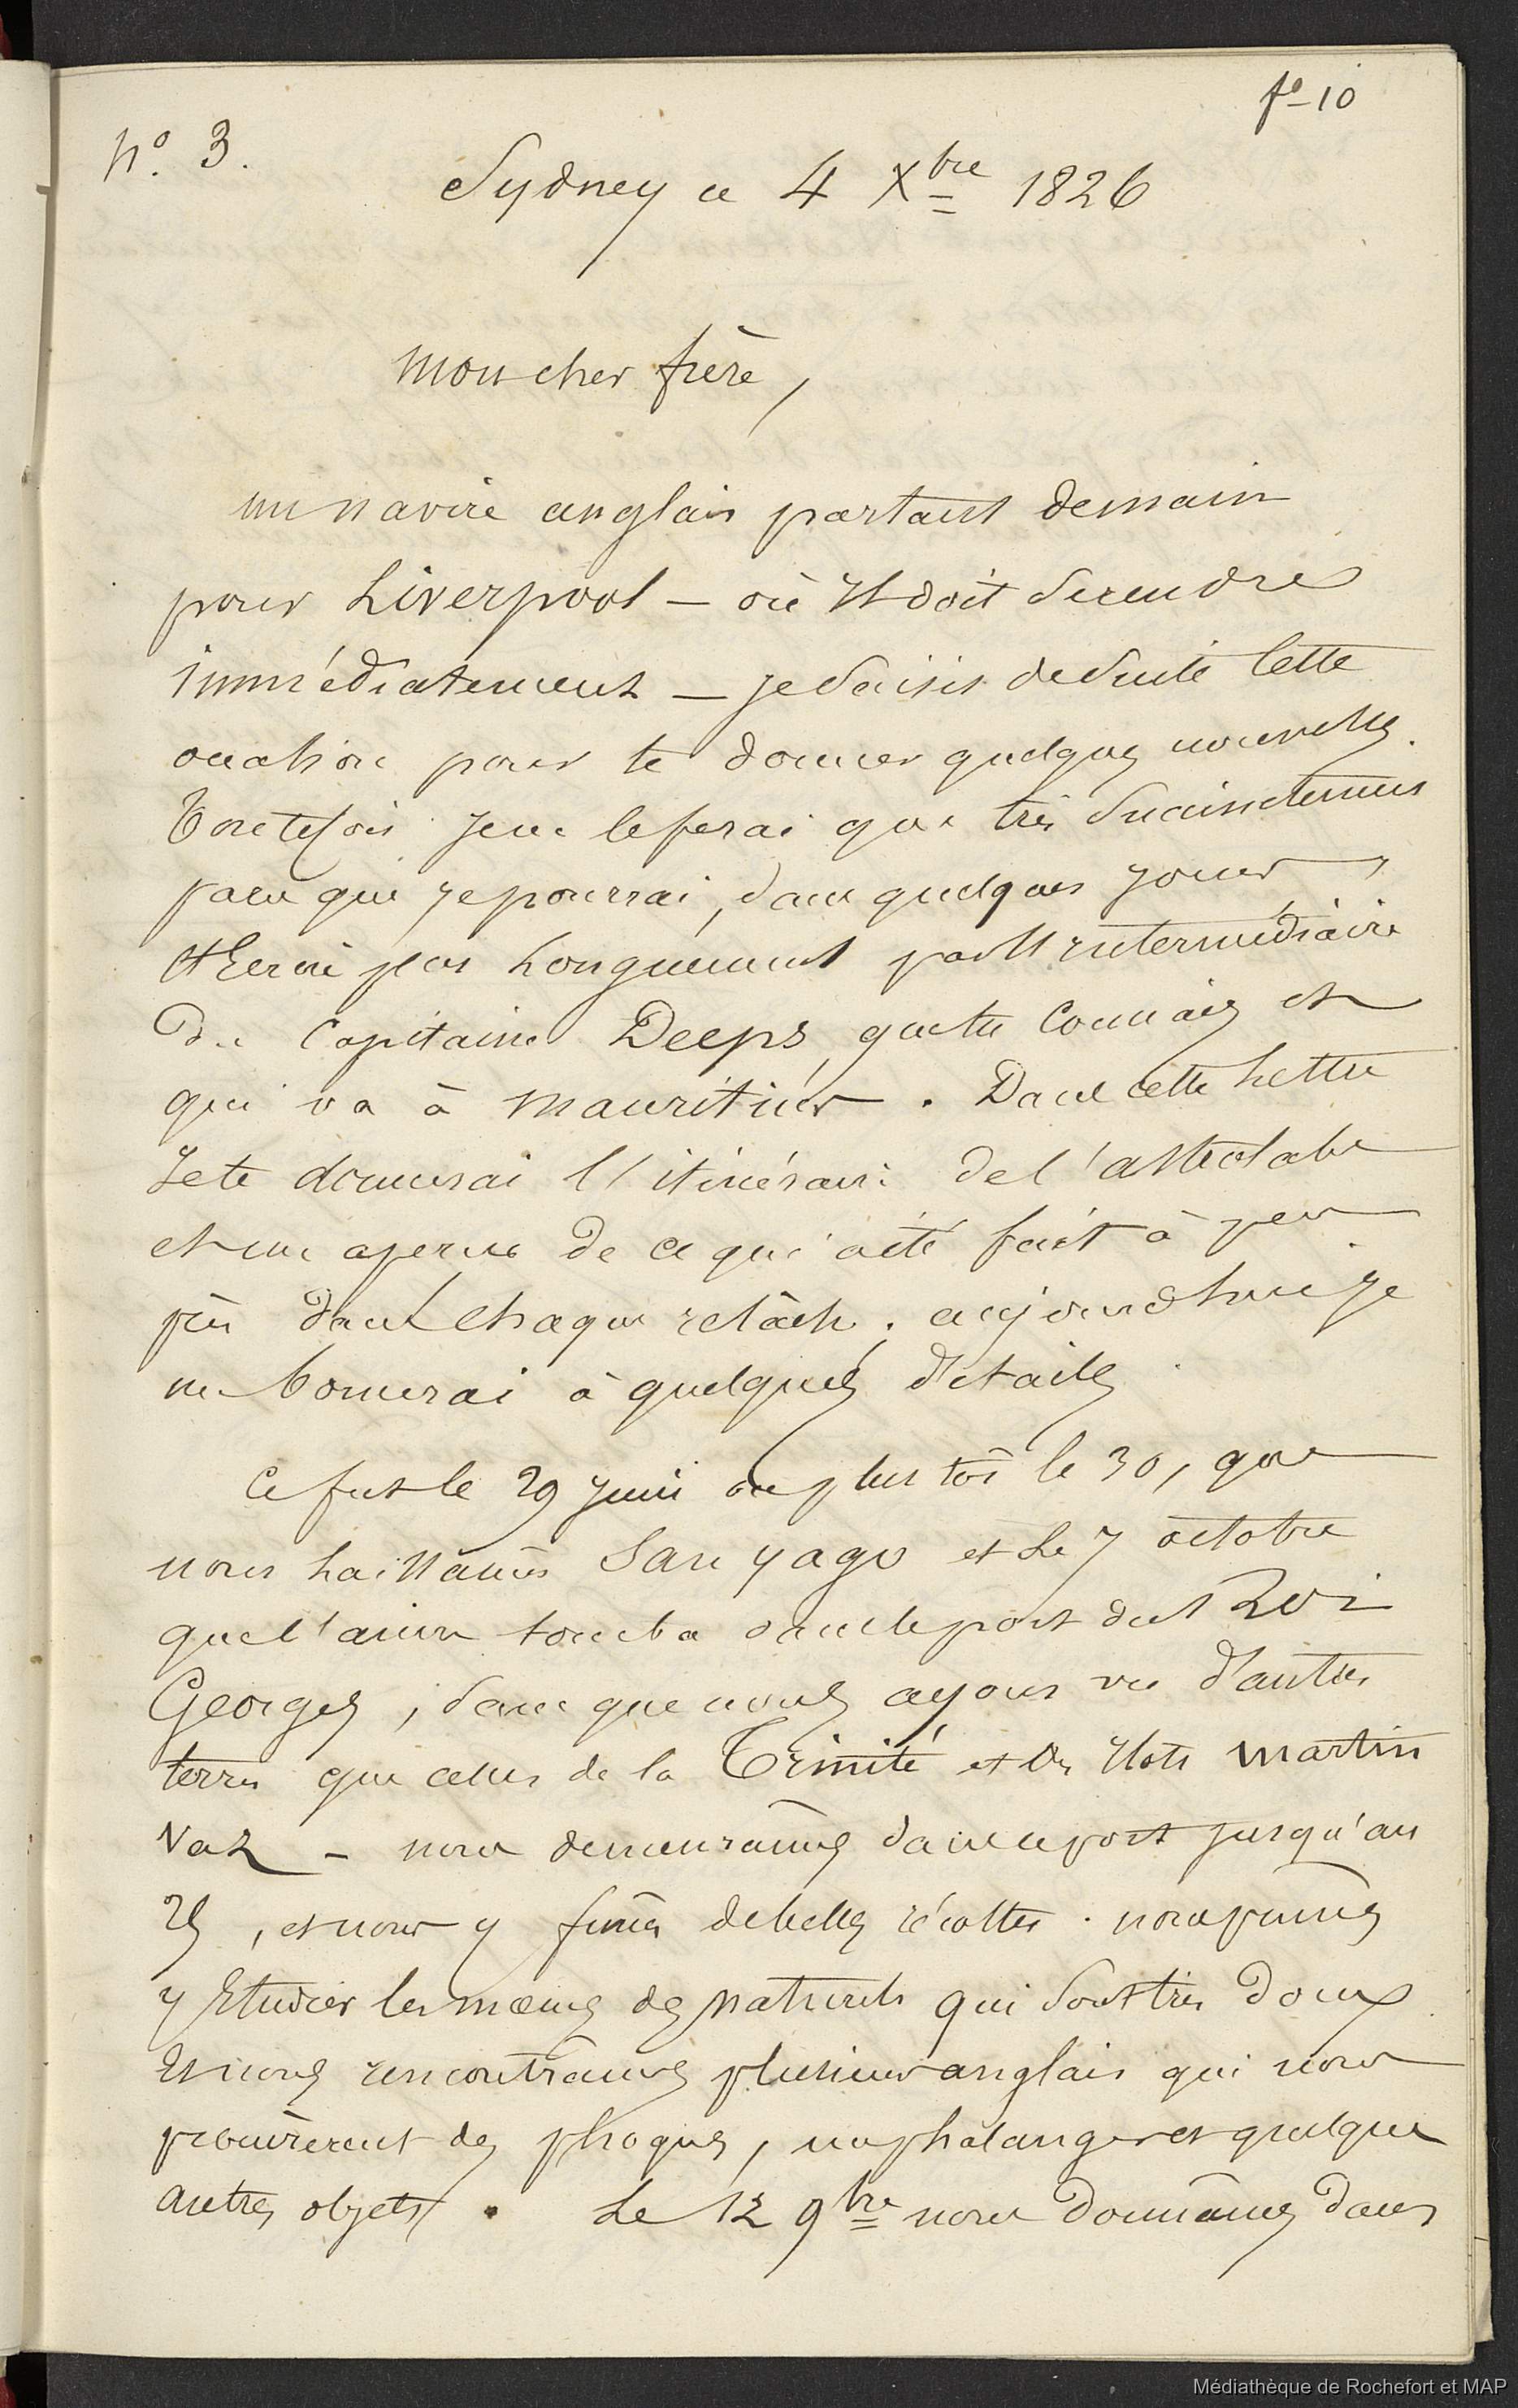 fº-10
Nº. 3.
Sydney ce 4 Xbre 1826
Mon cher frère,
un navire anglais partant demain
pour Liverpool — où Il doit se rendre
immédiatement — je saisis de suite cette
occation pour te donner quelques nouvelles.
Toutefois je ne le ferai que très succinctement
parce que je pourrai, dans quelques jours,
t'Ecrire plus Longuement par l'intermédiaire
du Capitaine Deeps, que tu Connais et
qui va à Mauritius. Dans cette Lettre
Je te donnerai l'itinéraire de l'astrolabe
et un apercu de ce qui a été fait à peu
près dans chaque relâche. aujourdhui je
me bornerai à quelques détails.
Ce fut le 29 juin ou plus tôt le 30, que
nous Laissâmes San yago et Le 7 octobre
que l'ancre tomba dans le port du Roi
Georges, sans que nous ayons vu d'autres
terres que celles de la Trinité et des Ilots Martin
Vaz — nous demeurâmes dans ce port jusqu'au
25, et nous y fimes de belles récoltes. nous pumes
y Etudier les mœurs des naturels qui sont très doux
Et nous rencontrâmes plusieurs anglais qui nous
procurèrent des phoques, un phalanger et quelques
autres objets. Le 12 9bre nous donnâmes dans
Médiathèque de Rochefort et MAP